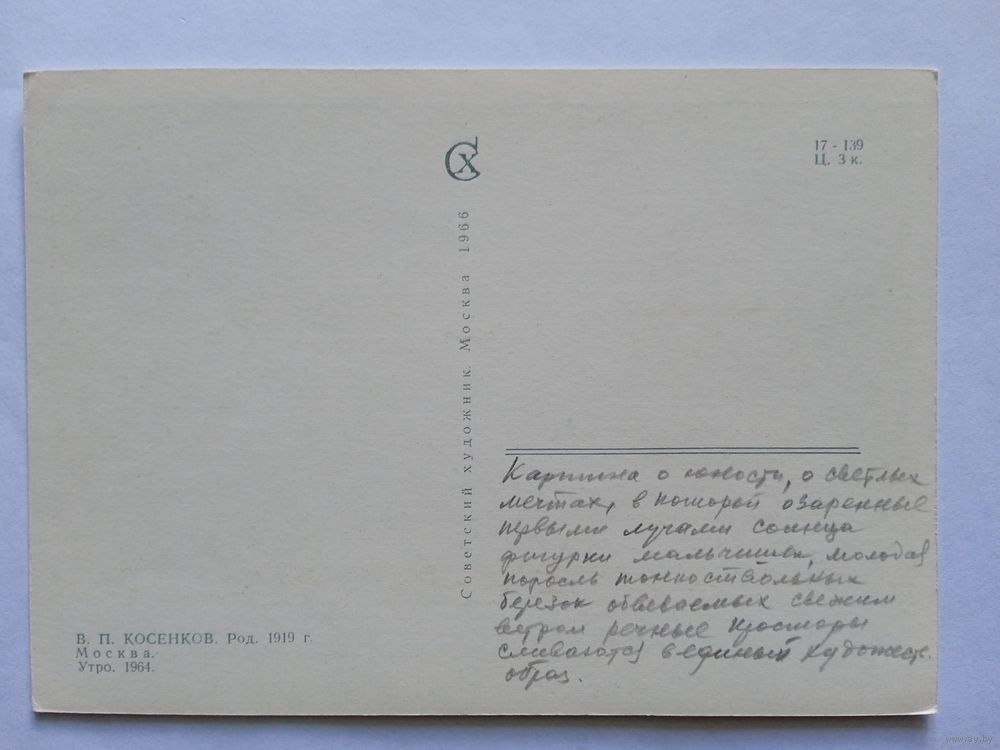 СХ
17 - 139
Ц. 3 к.
Советский художник. Москва 1966
Картина о юности, о светлых
мечтах, в которой озаренные
первыми лучами солнца
фигурки мальчишек, молодая
поросль тонкоствольных
березок обвеваемых свежим
ветром речные просторы
сливаются в единый художеств.
образ.
В. П. КОСЕНКОВ. Род. 1919 г.
Москва.
Утро. 1964.
www.ay.by